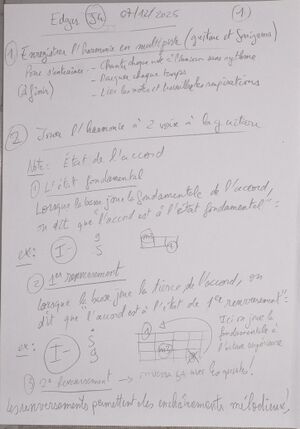 Edgar 07/12/2025 (1)
① Enregistrer l'harmonie en multipiste (guitare et
Pour s'entraîner - Chanter chaque note à l'unisson sans rythme
(à finir) - Marquer chaque temps
- Lier les notes et travailler les respirations
② Jouer l'harmonie à 2 voix à la guitare
Note: État de l'accord
① L'état fondamental
Lorsque la basse joue la fondamentale de l'accord,
on dit que "l'accord est à l'état fondamental":
ex: I- 3
S
② 1er renversement
Lorsque la basse joue la tierce de l'accord, on
dit que "l'accord est à l'état de 1er renversement":
ex: I- S
3
Ici on joue la
fondamentale à
l'octave supérieure
③ 2e Renversement →
Les renversements permettent des enchaînements mélodieux!